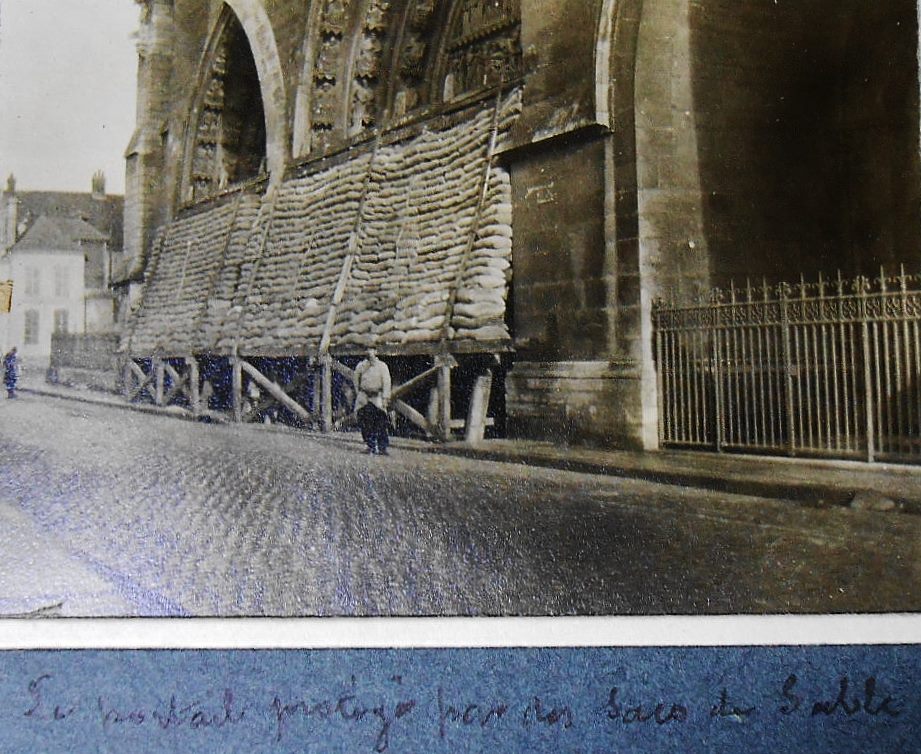 Le portail protégé par des Sacs de Sable